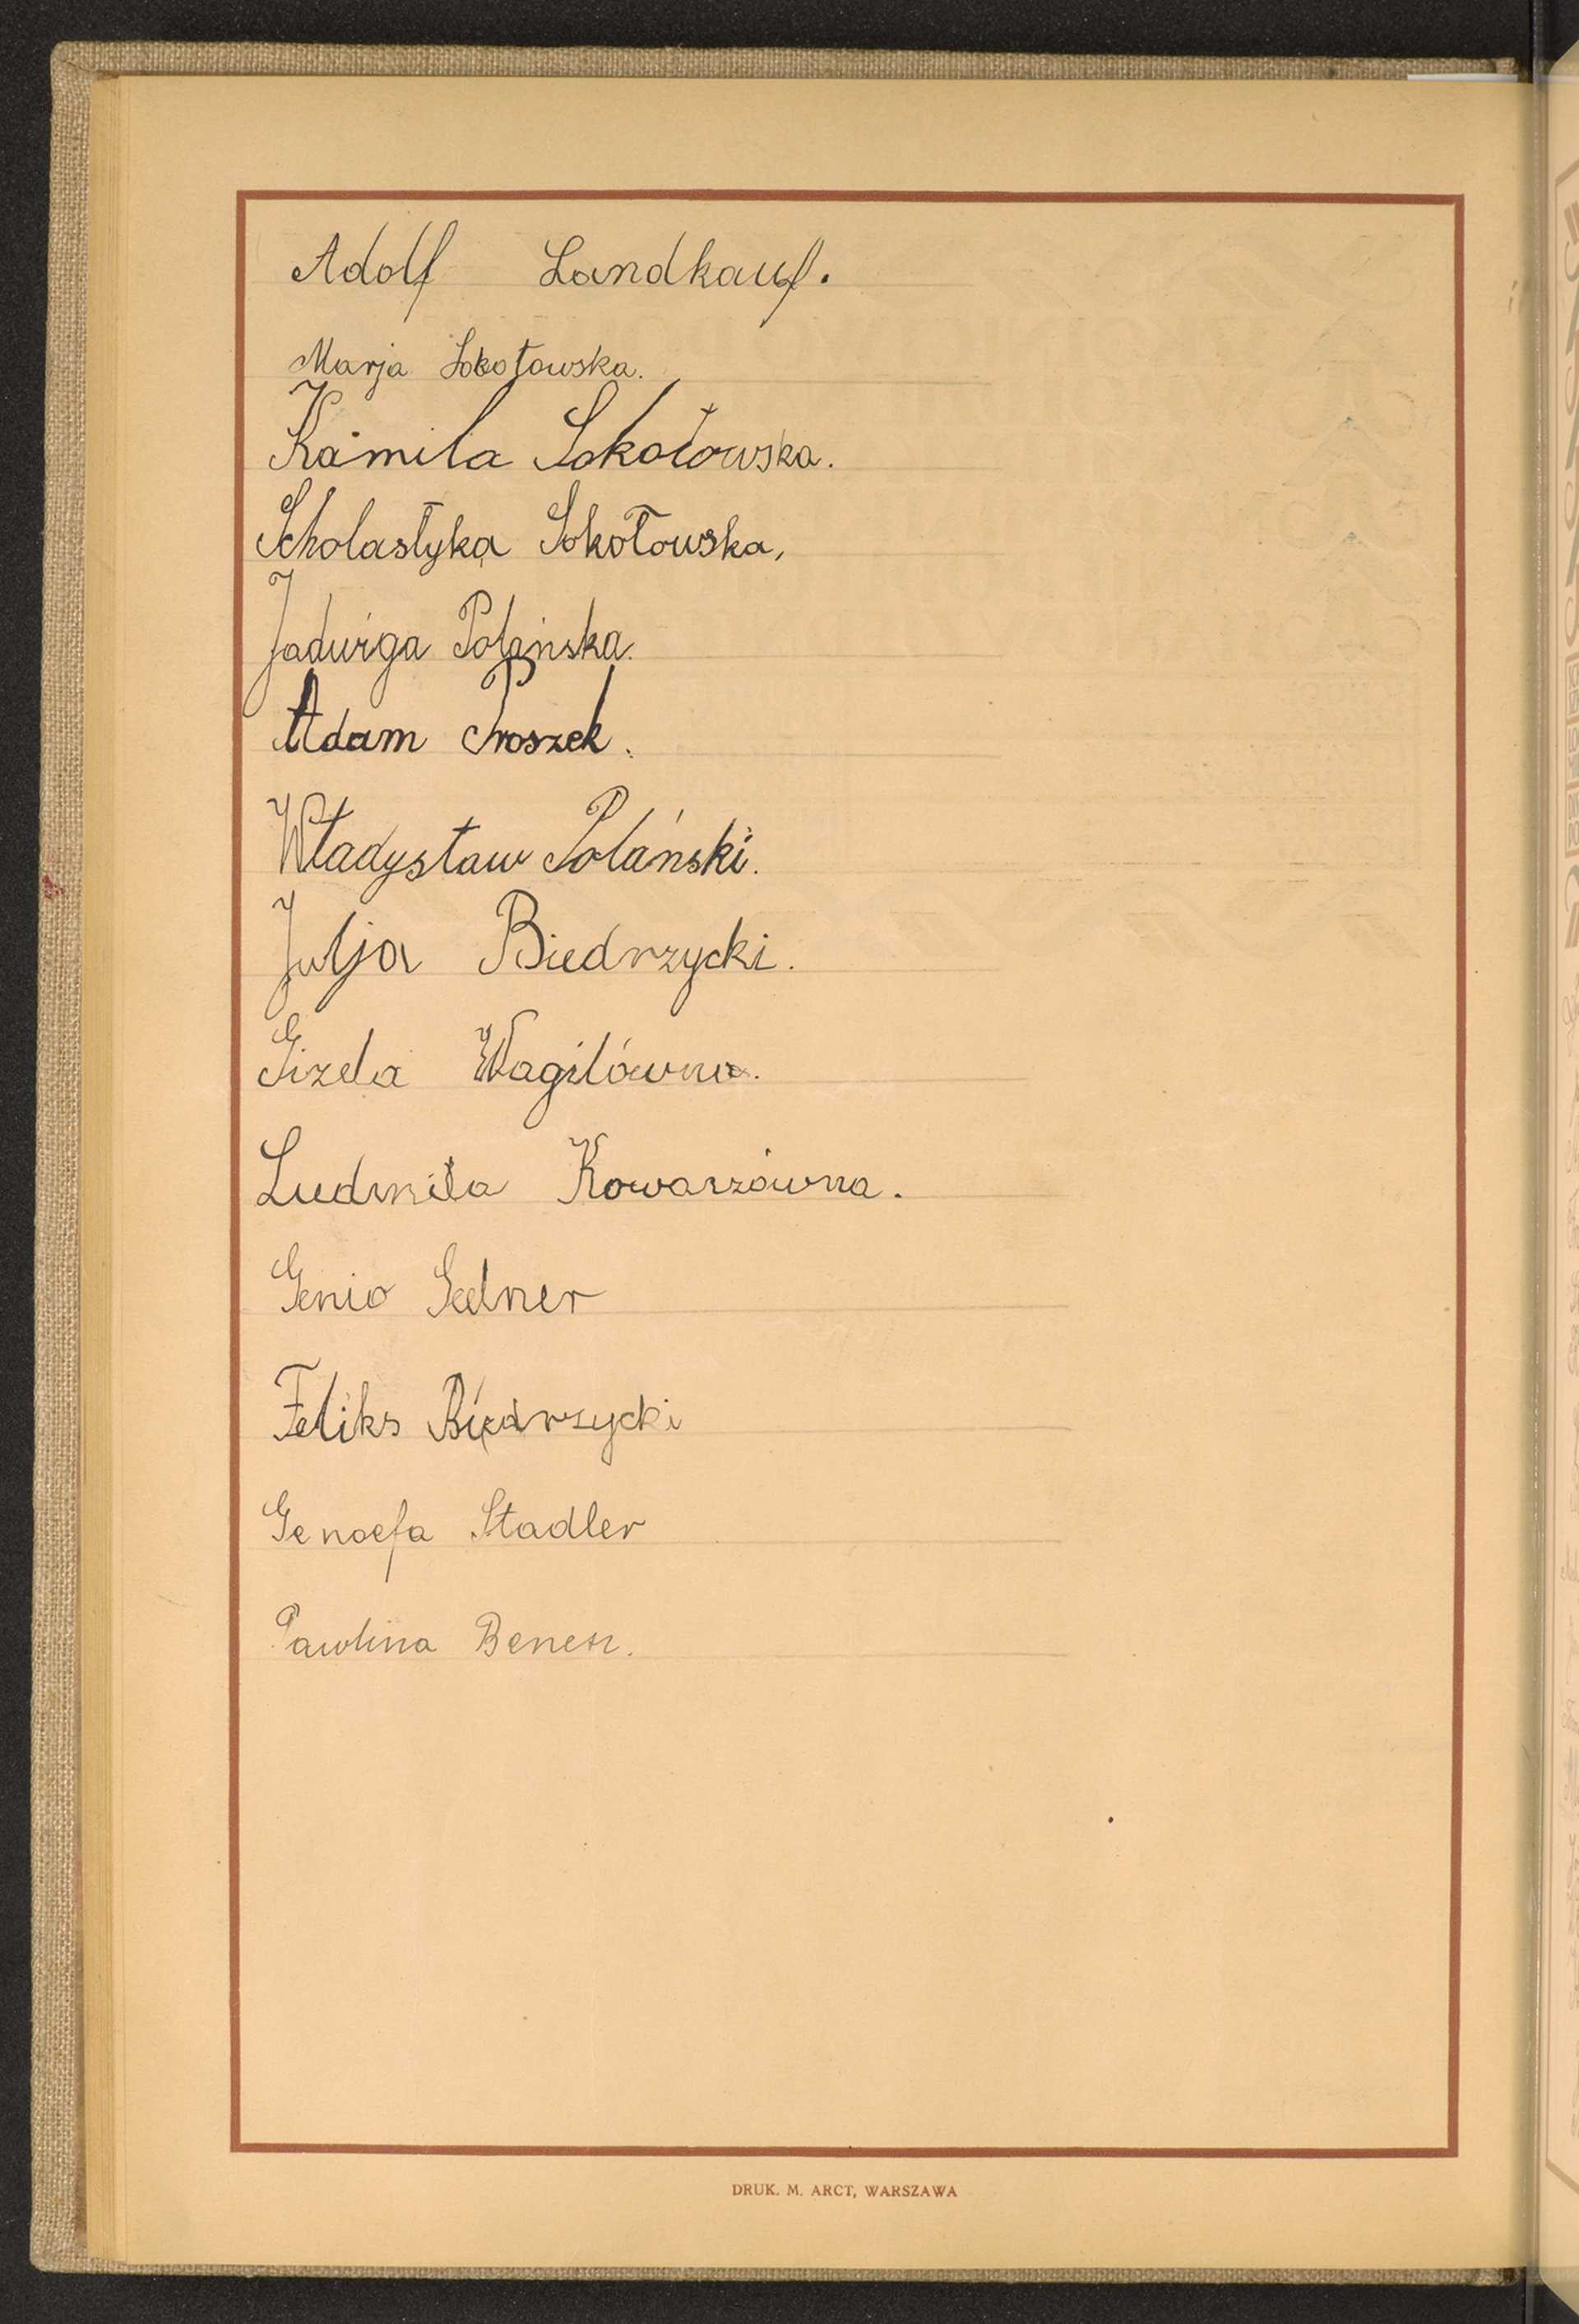 Adolf Landkauf.
Marja Sokołowska.
Kamila Sokołowska.
Scholastyka Sokołowska,
Jadwiga Polańska.
Adam Proszek.
Władysław Polański.
Julja Biedrzycki.
Gizela Wagilówna.
Ludmiła Kowarzówna.
Genio Gelner
Feliks Biedrzycki
Genoefa Stadler
Pawlina Benesz.
DRUK. M. ARCT, WARSZAWA